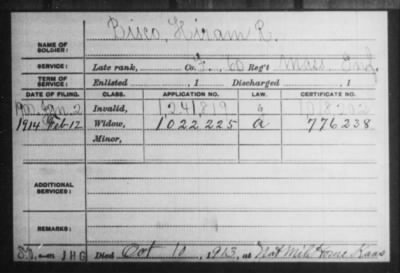 NAME OF SOLDIER: Bisco, Hiram R.
SERVICE: Late rank, Co. 60 Reg't Mass. Inf.
TERM OF SERVICE: Enlisted , 1 Discharged , 1
DATE OF FILING. CLASS. APPLICATION NO. LAW. CERTIFICATE NO.
Jan. 2 Invalid, 1241,819
1914 Feb-12 Widow, 1022225 a 776238
Minor,
ADDITIONAL SERVICES:
REMARKS:
JHG Died Oct 10, 1913, at Natl Mil Home Kans